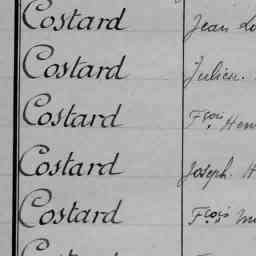 Costard Jean
Costard Julien.
Costard Fçois Hen
Costard Joseph. H
Costard Fçois
Costard